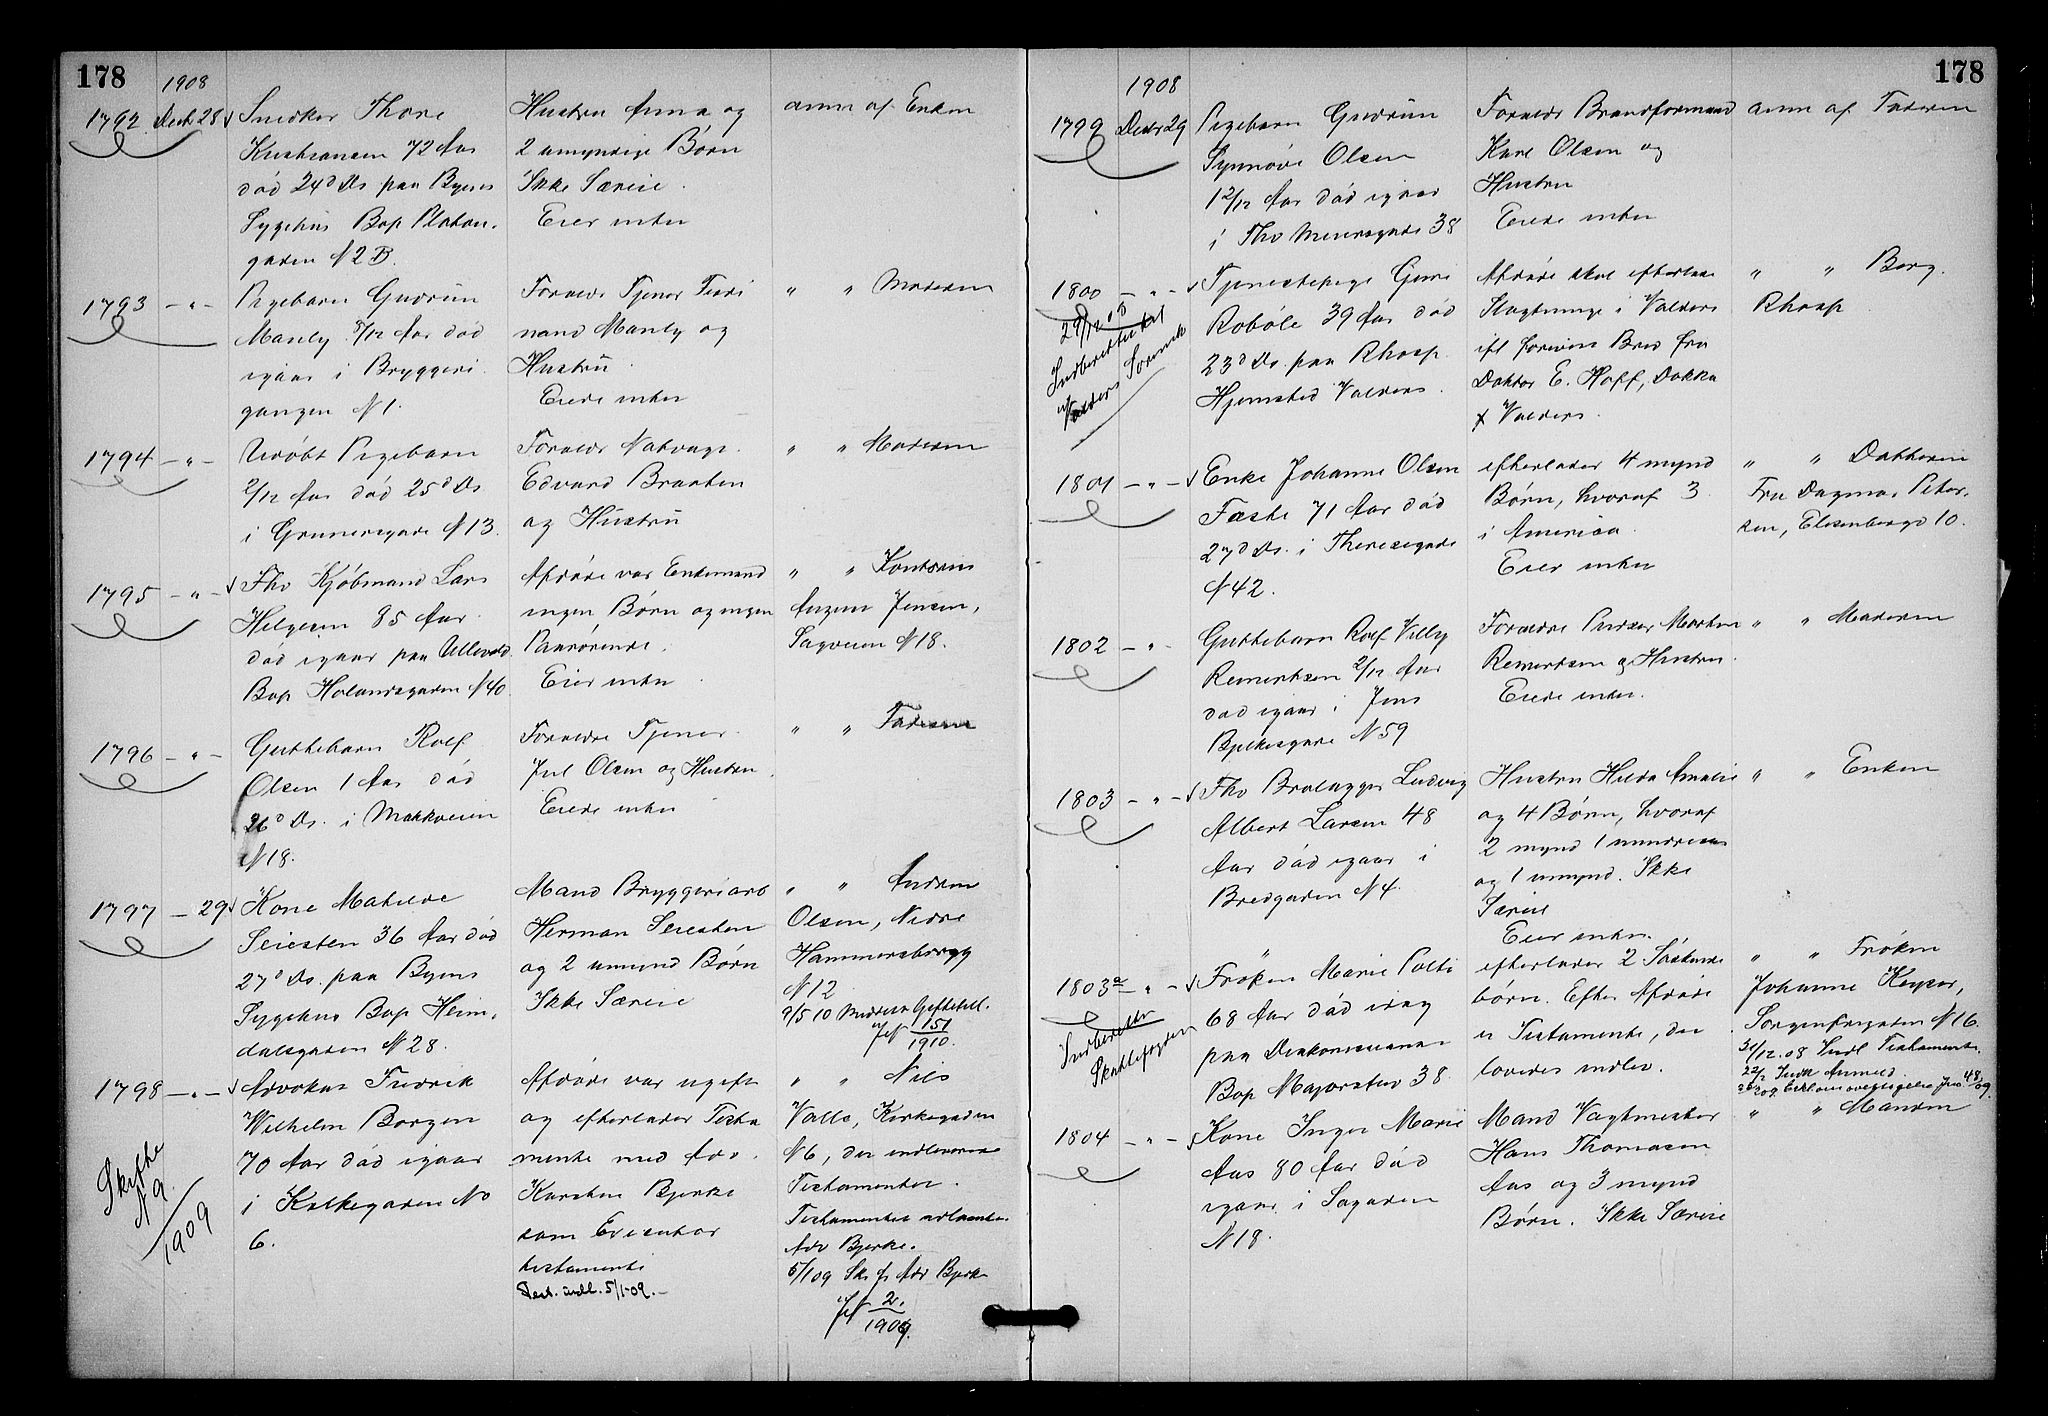 178
1908
1792. Decb 28 Snedker Thore
Kristiansen 72 Aar
død 24d Ds paa Byens
Sygehus Bop Platou-
gaden N 2 B.
Hustru Anna og
2 umyndige Børn
Ikke Særeie.
Eier intet
anm af Enken
1793 - " - Pigebarn Gudrun
Manly 5/12 Aar død
igaar i Bryggeri-
gangen N 1.
Forældr Tjener Ferdi
nand Manly og
Hustru.
Eiede intet
" " Moderen
1794 - " - Udøbt Pigebarn
2/12 Aar død 25d Ds
i Grunersgade N 13.
Forældr Natvagt
Edvard Braaten
og Hustru
" " Moderen
1795 - " - Fhv Kjøbmand Lars
Helgesen 85 Aar
død igaar paa Ullevold
Bop Holandsgaden N 40
Afdøde var Enkemand
ingen Børn og ingen
Paarørende.
Eier intet
" " Kontorist
Jensen,
Sagveien N 18.
1796 - " - Guttebarn Rolf
Olsen 1 Aar død
26d Ds. i Markveien
N 18.
Forældre Tjener
Jul Olsen og Hustru
Eiede intet
" " Faderen
1797 - 29 Kone Mathilde
Seiesten 36 Aar død
27d Ds. paa Byens
Sygehus Bop Heim-
dalsgaden N 28.
Mand Bryggeriarb
Herman Seiesten
og 2 umynd Børn
Ikke Særeie
" "
Olsen, Nedre
Hammersborgg
N 12
9/5 10 Giftetill.
Jf N 151/1910.
1798 - " - Advokat Fredrik
Wilhelm Borgen
70 Aar død igaar
i Kirkegaden No
6.
Afdøde var ugift
og efterlader Testa
mente med Adv.
Karsten Bjerke
som Executor
testamenti
Test. indl. 5/1-09.-
" " Nils
Valle, Kirkegaden
N 6, der indleverede
Testamentet.
Testamentet
Adv Bjerke.
5/1 09 Sk. f. Adv Bjerke
Jf N 2./1909.
Skifte
N 9./1909
178
1908
1799 Decbr 29 Pigebarn Gudrun
Synnøve Olsen
1 2/12 Aar død igaar
i Thv Meiersgade 38
Forældr Brandformand
Karl Olsen og
Hustru
Eiede intet
anm af Faderen
1800 - " - Tjenestepige Guri
Robøle 39 Aar død
23d Ds. paa Rhosp.
Hjemsted Valders.
Afdøde skal efterlade
Slægtninge i Valders
ifl forevist Brev fra
Doktor E. Hoff, Dokka
x Valders.
" " Berg.
Rhosp
29/12 08
Indberettet til
Valders Sorensk
1801 - " - Enke Johanne Olsen
Fæste 71 Aar død
27d Ds. i Theresegade
N 42.
efterlader 4 mynd
Børn, hvoraf 3
i America.
Eier intet
" " Datteren
Fru Dagmar Peter-
sen, Eilertsbergs 10.
1802 - " - Guttebarn Rolf Villy
Reinertsen 2/12 Aar
død igaar i Jens
Bjelkesgade N 59
Forældre Pudser Morten
Reinertsen og Hustru.
Eiede intet.
" " Moderen
1803 - " - Fhv Brolægger Ludvig
Albert Larsen 48
Aar død igaar i
Bredgaden N 4.
Hustru Hilda Amalie
og 4 Børn, hvoraf
2 mynd 1 mindreaa
og 1 umynd. Ikke
Særeie
Eier intet.
" " Enken
1803a - " - Frøken Marie Polti
68 Aar død idag
paa Diakonissean
Bop Majorstuv 38
efterlader 2 Søskende
børn. Efter Afdøde
er Testamente, der
lovedes indlev.
" " Frøken
Johanne Keyser,
Sorgenfrigaden N 16.
31/12.08 Indl Testamente
Indberettet
Skattefogden
1804 - " - Kone Inger Marie
Aas 80 Aar død
igaar i Sagaden
N 18.
Mand Vagtmester
Hans Thomasen
Aas og 3 mynd
Børn. Ikke Særeie
" " Manden